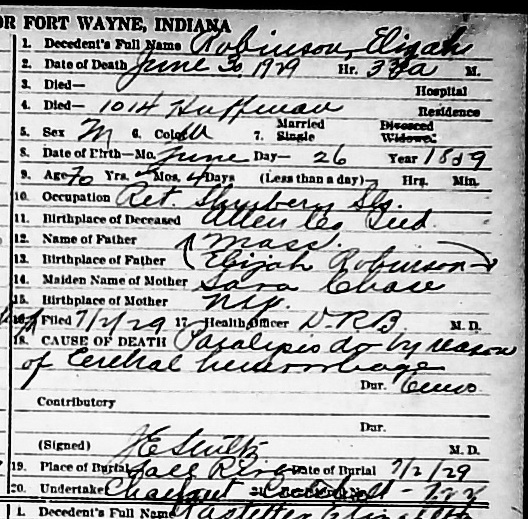 OR FORT WAYNE, INDIANA
1. Decedent's Full Name Robinson, Elijah
2. Date of Death June 30 1929 Hr. M.
3. Died— Hospital
4. Died— 1014 Huffman Residence
5. Sex M 6. Color W 7. Married Single Divorced Widowed
8. Date of Birth—Mo. June Day— 26 Year
9. Age 70 Yrs. Mos. 4 Days (Less than a day) Hrs. Min.
10. Occupation Ret.
11. Birthplace of Deceased Allen Co Ind.
12. Name of Father Mass.
13. Birthplace of Father Elijah Robinson
14. Maiden Name of Mother Sara Chase
15. Birthplace of Mother N.Y.
16. Filed 7/2/29 17. Health Officer D.R.B. M. D.
18. CAUSE OF DEATH Paralysis do by reason
of Cerebral hemorrhage
Dur.
Contributory
Dur.
(Signed) J E Stultz M. D.
19. Place of Burial Date of Burial 7/2/29
20. Undertaker
1. Decedent's Full Name